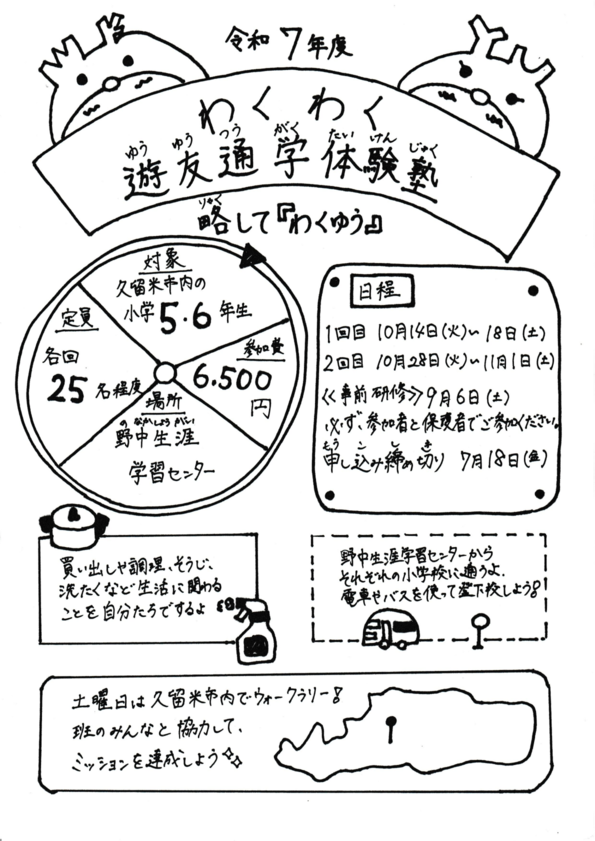 令和7年度
わくわく
遊友通学体験塾
ゆうゆうつうがくたいけんじゅく
略して『わくゆう』
りゃく
対象
久留米市内の
小学5・6年生
定員
各回
25名程度
参加費
6.500
円
場所
のなかしょうがい
野中生涯
学習センター
日程
1回目 10月14日(火)〜18日(土)
2回目 10月28日(火)〜11月1日(土)
《事前研修》9月6日(土)
必ず、参加者と保護者でご参加ください。
もうこしき
申し込み締め切り 7月18日(金)
買い出しや調理、そうじ、
洗たくなど生活に関わる
ことを自分たちでするよ
野中生涯学習センターから
それぞれの小学校に通うよ。
電車やバスを使って登下校しよう!
土曜日は久留米市内でウォークラリー!
班のみんなと協力して、
ミッションを達成しよう